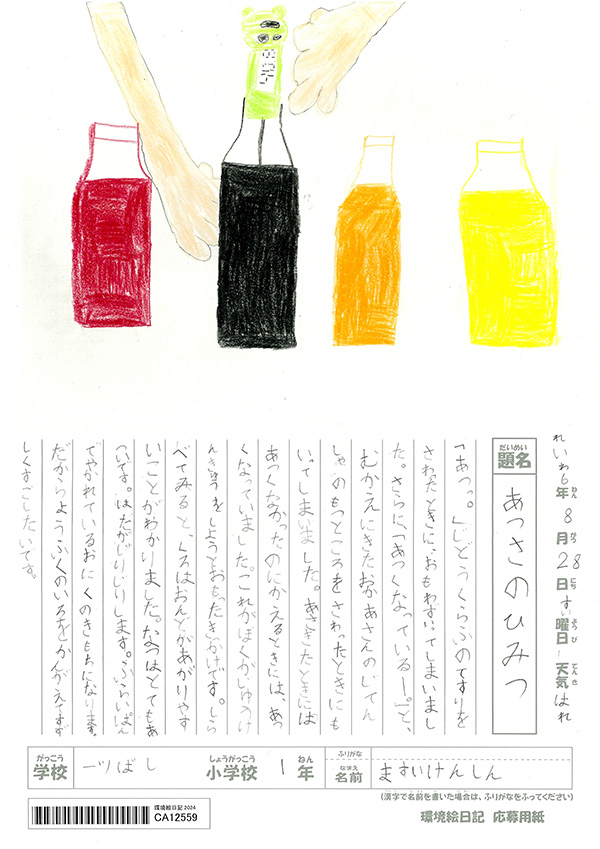 れいわ6年8月28日すい曜日 天気はれ
ねん
がつ
にち
ようび
てんき
だいめい
題名
あつさのひみつ
「あつっ。」じどうくらぶのてすりを
さわったときに、おもわずいってしまいまし
た。さらに、「あつくなっているー。」と、
むかえにきたおかあさんのじてん
しゃのもつところをさわったときにも
いってしまいました。あさきたときには
あつくなかったのにかえるときには、あつ
くなっていました。これがぼくがじゆうけ
んきゅうをしようとおもったきかけです。しら
べてみると、くろはおんどがあがりやす
いことがわかりました。なつはとてもあ
ついです。はだがじりじりします。ふらいぱん
でやかれているおにくのきもちになります。
だからようふくのいろをかんがえてすず
しくすごしたいです。
がっこう
学校
一ツばし
しょうがっこう
小学校
1
ねん
年
ふりがな
なまえ
名前
ますいけんしん
(漢字で名前を書いた場合は、ふりがなをふってください)
環境絵日記 2024
CA12559
環境絵日記 応募用紙